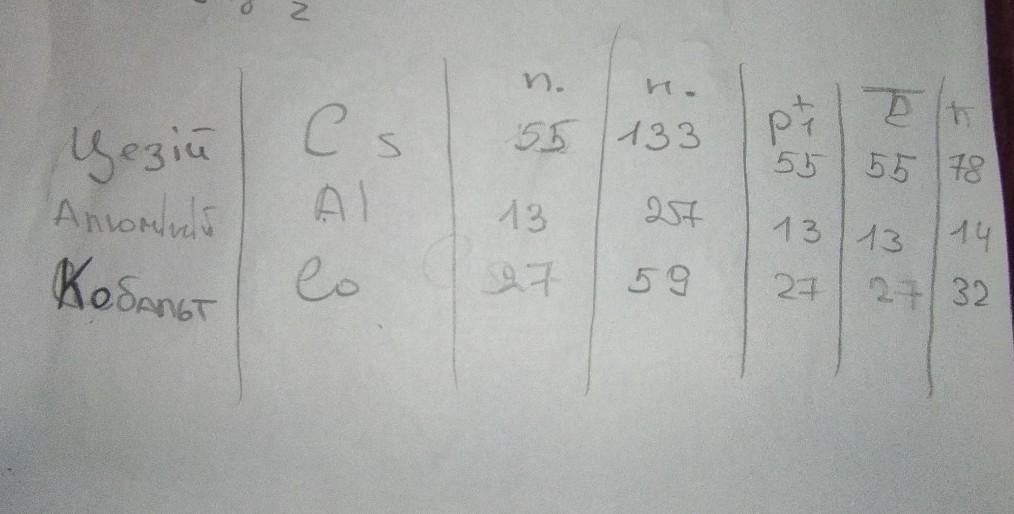 2
n. n. p⁺₁ e̅ n
Цезій Cs 55 133 55 55 78
Алюміній Al 13 257 13 13 14
Кобальт Co 27 59 27 27 32